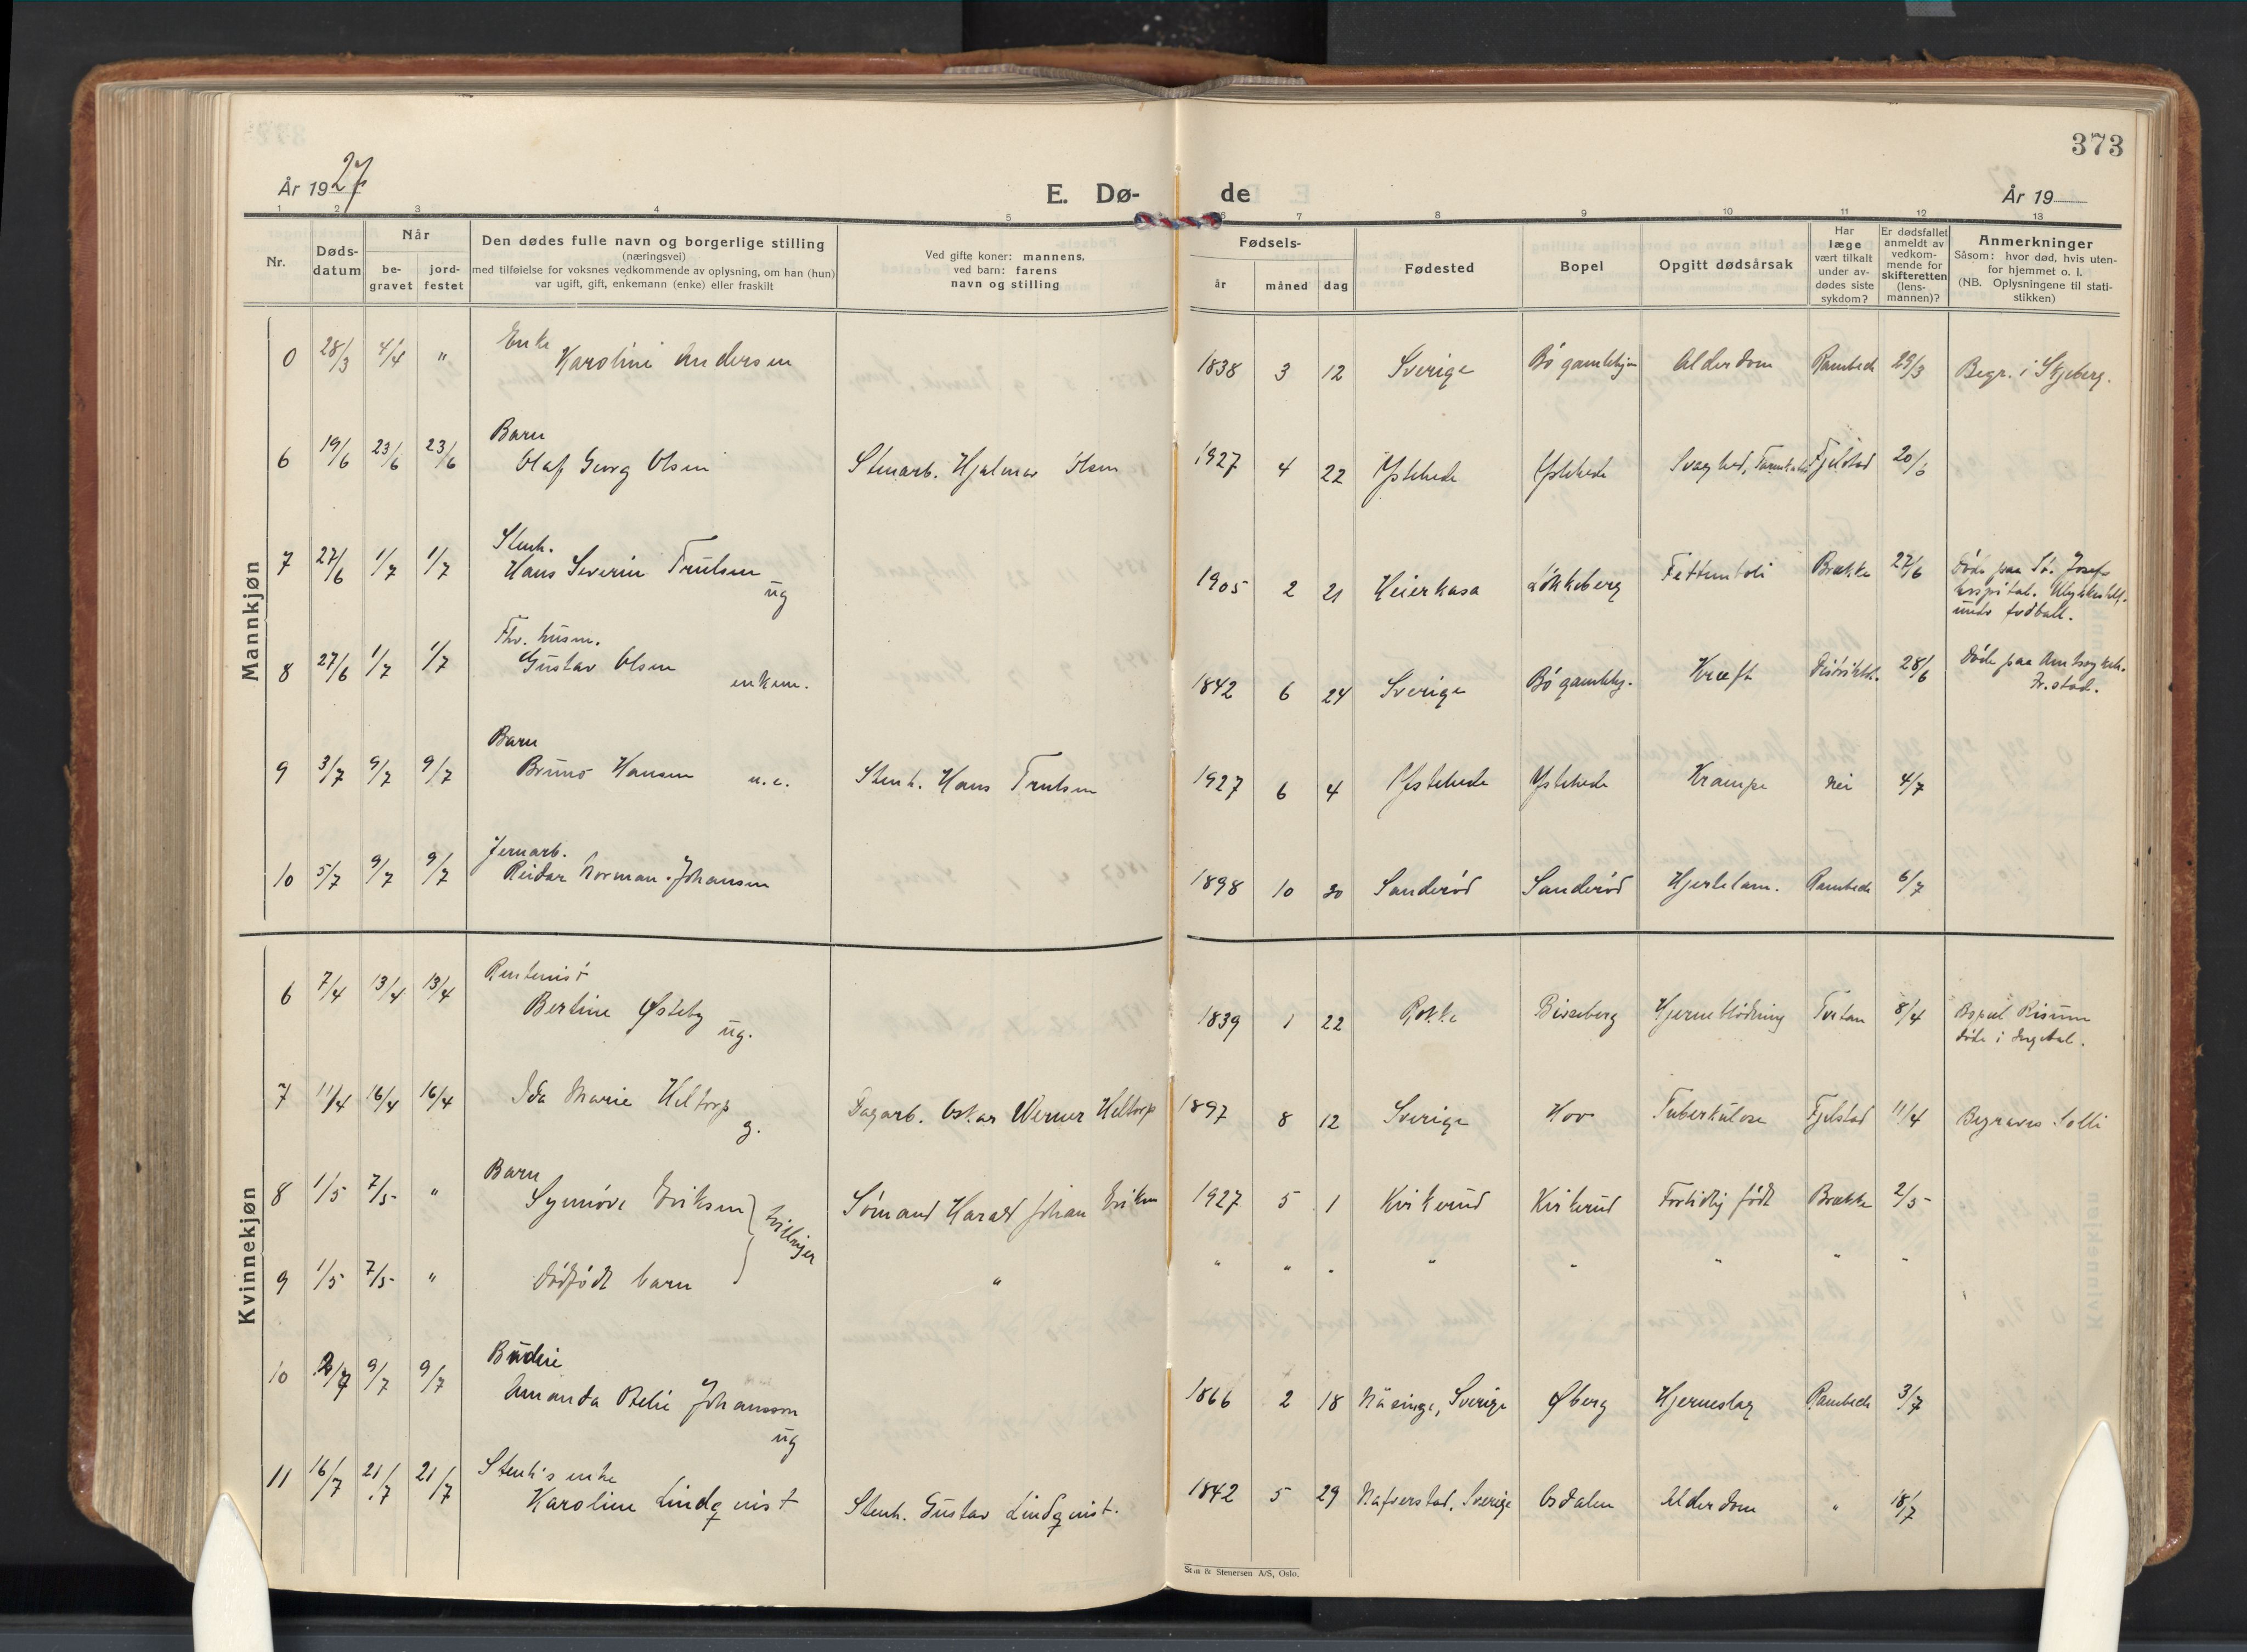 373
År 1927
E. Dø-
de
År 19
1 2 3 4 5 6 7 8 9 10 11 12 13
Nr.
Døds-
datum
Når
be-
gravet
jord-
festet
Den dødes fulle navn og borgerlige stilling
(næringsvei)
med tilføielse for voksnes vedkommende av oplysning, om han (hun)
var ugift, gift, enkemann (enke) eller fraskilt
Ved gifte koner: mannens,
ved barn: farens
navn og stilling
Fødsels-
år
måned
dag
Fødested
Bopel
Opgitt dødsårsak
Har
læge
vært tilkalt
under av-
dødes siste
sykdom?
Er dødsfallet
anmeldt av
vedkom-
mende for
skifteretten
(lens-
mannen)?
Anmerkninger
Såsom: hvor død, hvis uten-
for hjemmet o. l.
(NB. Oplysningene til stati-
stikken)
Mannkjøn
Enke
0 28/3 4/4 " Karoline Andersen 1838 3 12 Sverige Bø gamlehjem Alderdom Rambech 29/3 Begr. i Skjeberg.
Barn
6 19/6 23/6 23/6 Olaf Georg Olsen Stenarb. Hjalmar Olsen 1927 4 22 Ystehede Ystehede Svaghed, Fjelstad 20/6
Stenh.
7 27/6 1/7 1/7 Hans Severin Trulsen ug 1905 2 21 Heierkasa Løkkeberg Fettemboli Brække 27/6 Døde paa St. Josefs
hospital.
under fodball.
Fhv. husm.
8 27/6 1/7 1/7 Gustav Olsen enkem. 1842 6 24 Sverige Bø gamlehj. Kræft 28/6 Døde paa Amtssykeh.
Fr.stad.
Barn
9 3/7 9/7 9/7 Bruno Hansen u.e. Stenh. Hans Trulsen 1927 6 4 Ystehede Ystehede Krampe nei 4/7
Jernarb.
10 5/7 9/7 9/7 Reidar Norman Johansen 1898 10 30 Sanderød Sanderød Hjertelam. Rambech 6/7
Kvinnekjøn
Rentenist
6 7/4 13/4 13/4 Bertine Østeby ug. 1839 1 22 Rokke Bisseberg Hjerneblødning Tvetan 8/4 Bopæl Risum
døde i Ingedal.
7 11/4 16/4 16/4 Ida Marie Heltorp g. Dagarb. Oskar Werner Heltorp 1897 8 12 Sverige Hov Tuberkulose Fjelstad 11/4 Begraves Solli
Barn
8 1/5 7/5 " Synnøve Eriksen } tvillinger Sømand Harald Johan Eriksen 1927 5 1 Kirkerud Kirkerud Fortidlig født Brække 2/5
9 1/5 7/5 " Dødfødt barn " " " " " " " " "
Budeie
10 2/7 9/7 9/7 Amanda Otelie Johansson ug 1866 2 18 Näsinge, Sverige Øberg Hjerneslag Rambech 3/7
Stenh's enke
11 16/7 21/7 21/7 Karoline Lindqvist Stenh. Gustav Lindqvist. 1842 5 29 Nafverstad, Sverige Osdalen Alderdom " 18/7
& Stenersen A/S, Oslo.